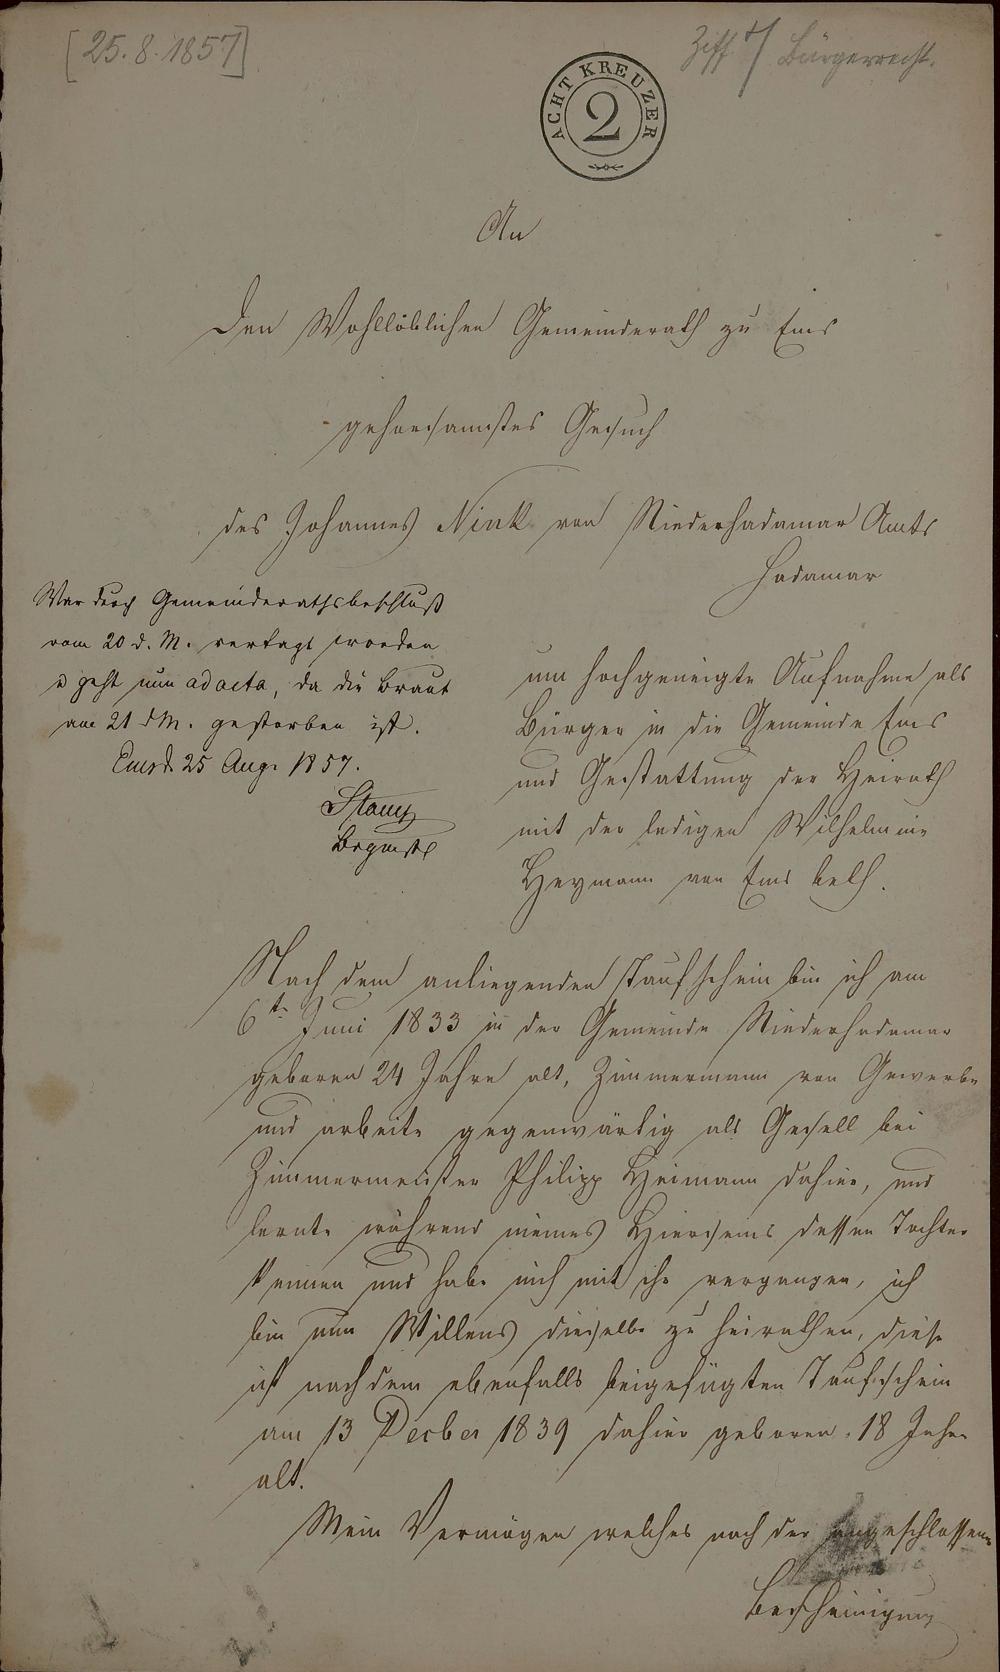 [25.8.1857]
Ziff. Bürgerrecht.
ACHT KREUZER
2
An
Den Wohllöblichen Gemeinderath zu Ems
gehorsamstes Gesuch
des Johannes Nink von Niederhadamar Amts
Hadamar
War durch Gemeinderathsbeschluß
vom 20 d. M. vertagt worden
u geht nun ad acta, da die Braut
am 21 d M. gestorben ist.
Ems d. 25 Aug. 1857.
um hochgeneigte Aufnahme als
Bürger in die Gemeinde Ems
und Gestattung der Heirath
mit der ledigen Wilhelmine
Heymann von Ems betr.
Nach dem anliegenden Taufschein bin ich am
6ten Juni 1833 in der Gemeinde Niederhadamar
geboren 24 Jahre alt, Zimmermann von Gewerbe
und arbeite gegenwärtig als Gesell bei
Zimmermeister Philipp Heimann dahier, und
lernte während meines Hierseins dessen Tochter
kennen und habe mich mit ihr vergangen, ich
bin nun Willens dieselbe zu heirathen, diese
ist nach dem ebenfalls beigefügten Taufschein
am 13 Decber 1839 dahier geboren, 18 Jahre
alt.
Mein Vermögen welches nach der angeschlossenen
Bescheinigung